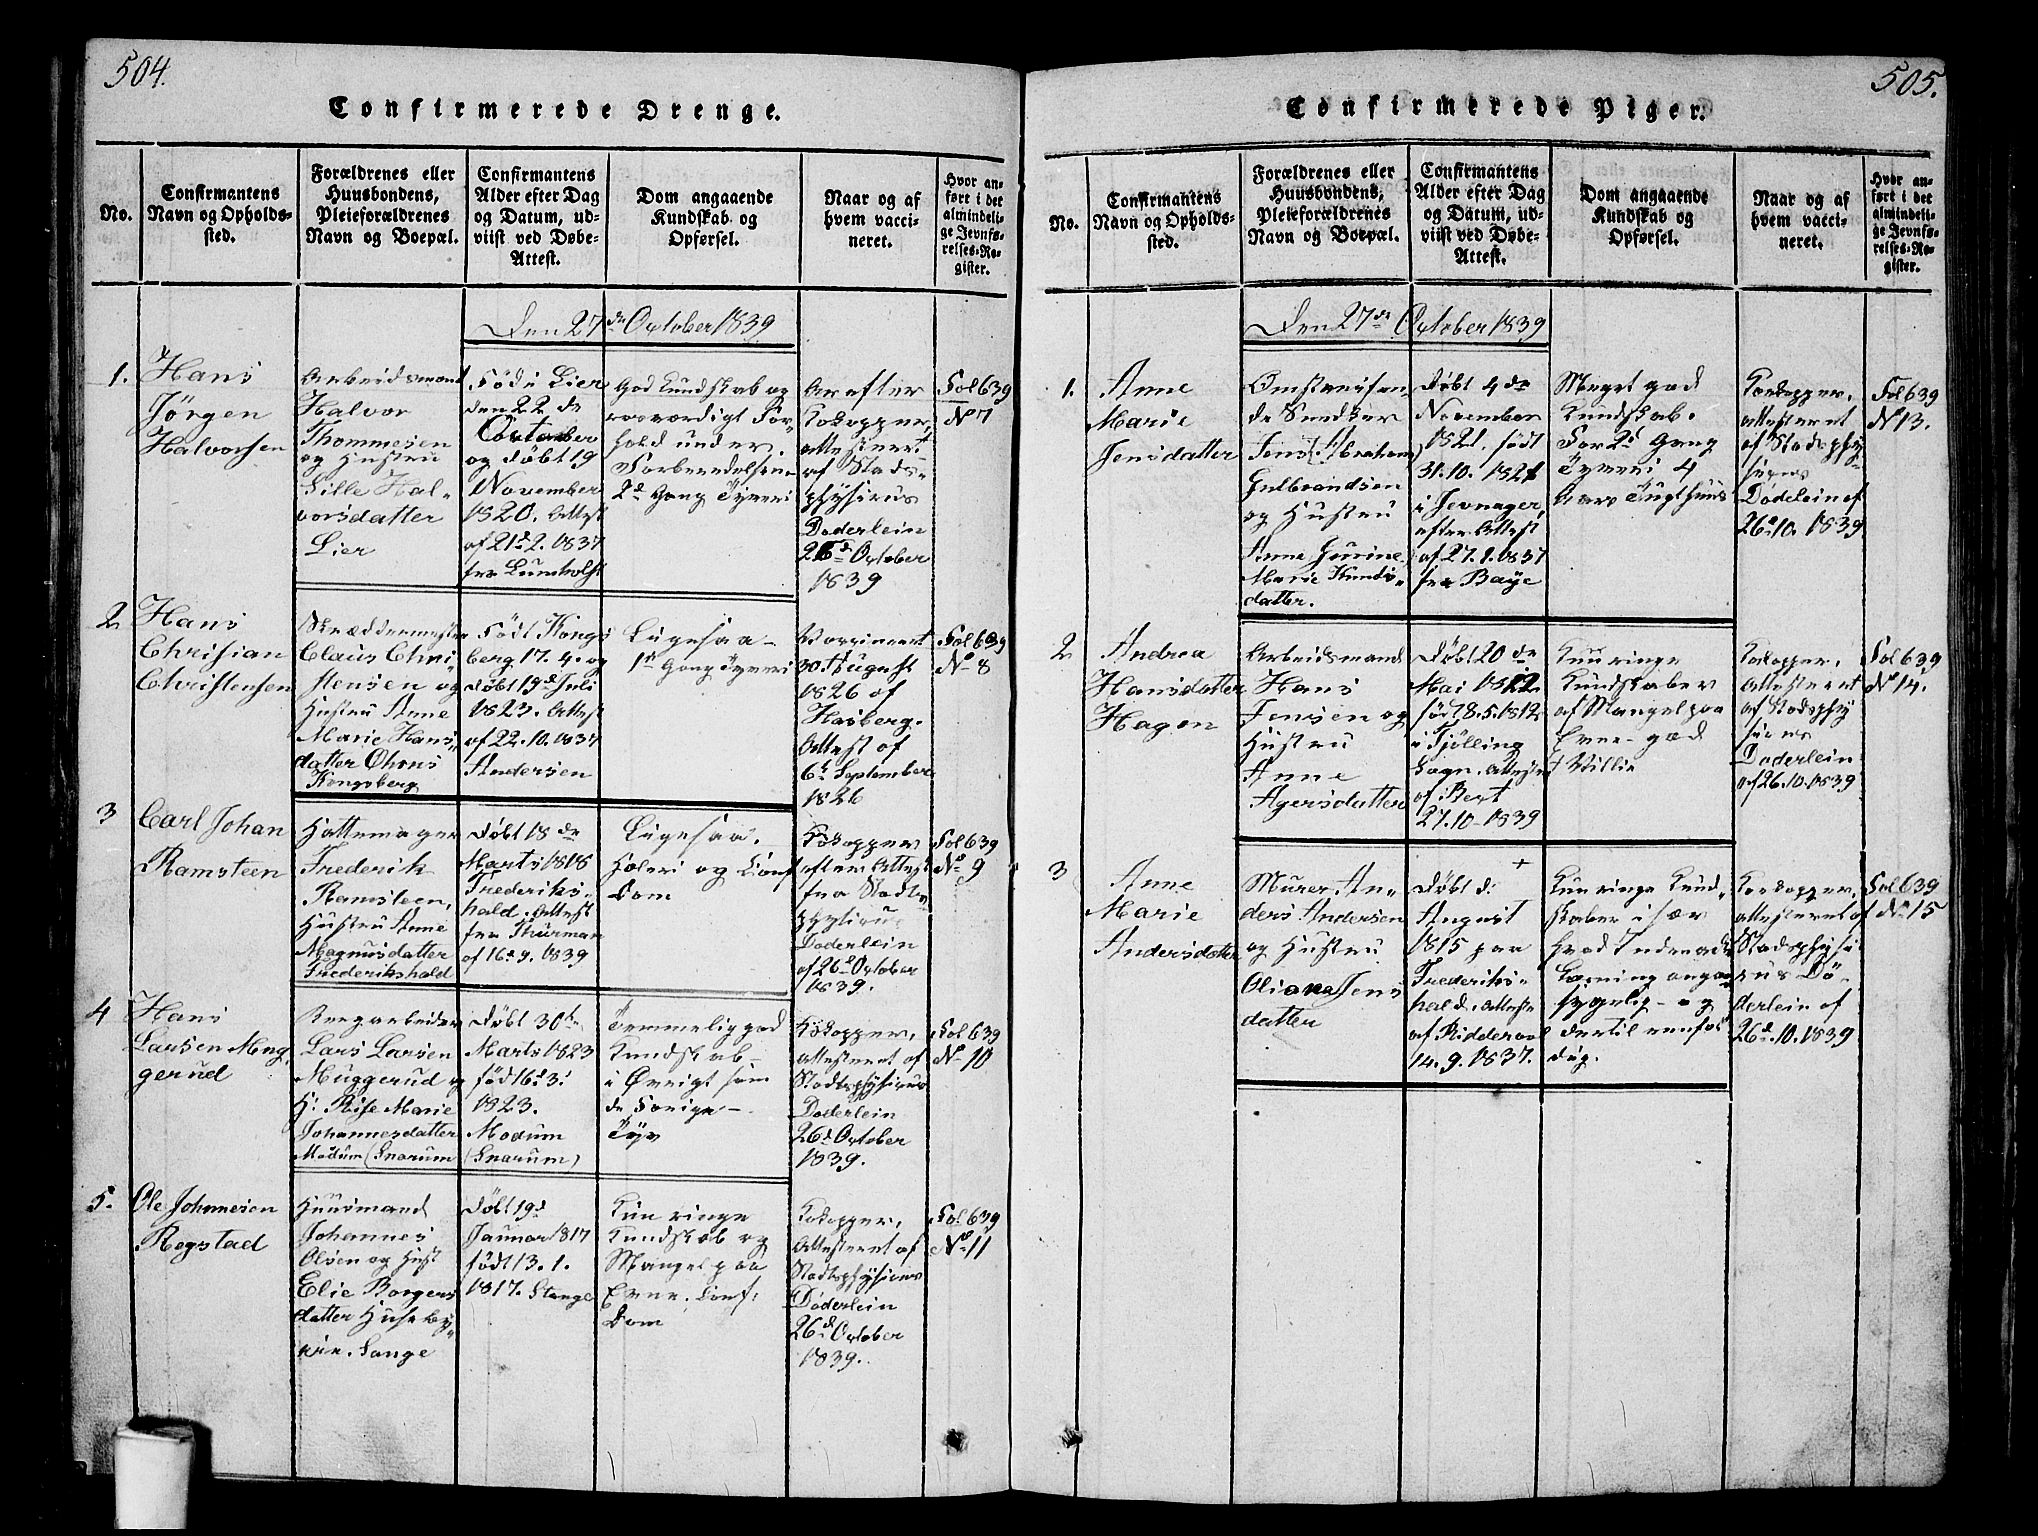 504.
Confirmerede Drenge.
No.
Confirmantens
Navn og Opholds-
sted.
Forældrenes eller
Huusbondens,
Pleieforældrenes
Navn og Boepæl.
Confirmantens
Alder efter Dag
og Datum, ud-
viist ved Døbe-
Attest.
Dom angaaende
Kundskab og
Opførsel.
Naar og af
hvem vacci-
neret.
Hvor an-
ført i det
almindeli-
ge Jevnfø-
relses-Re-
gister.
Den 27de October 1839
1.
Hans
Jörgen
Halvorsen
Arbeidsmand
Halvor
Thommesen
og Hustru
Sille Hal-
vorsdatter
Lier
Föd i Lier
den 22 de
October
og döbt 19
November
1820. Attest
af 21d 2. 1837
fra Lumholtz
God Kundskab og
roesværdigt For-
hold under
Forberedelsen
2d Gang Tyveri
Ar efter
Kokopper,
attesteret
af Stads-
physicus
Döderlein
26d October
1839
Fol 639
No 7
2
Hans
Chrisian
Christensen
Skræddermester
Claus Chri-
stensen og
Hustru Anne
Marie Hans-
datter Ohrns
Kongsberg
Födt Kongs
berg 17. 4. og
döbt 19d Juli
1823. Attest
af 22.10.1837
Andersen
Ligesaa -
1ste Gang Tyveri
Vaccineret
30 August
1826 af
Hasberg.
Attest af
6t September
1826
Fol 639
No 8
3
Carl Johan
Ramsteen
Hattemager
Frederik
Ramsteen,
Hustru Anne
Magnusdatter
Frederikshald
Döbt 18 de
Marts 1818
Frederiks-
hald. Attest
fra Thurman
af 16d 9. 1839
Ligesaa.
Hæleri og Conf
Dom
Kokopper
efter Attest
fra Stads-
physicus
Döderlein
af 26d October
1839.
Fol 639
No 9
4
Hans
Larsen Mug
gerud
Bergarbeider
Lars Larsen
Muggerud og
H: Rise Marie
Johannesdatter
Modum (Snarum
Döbt 30te
Marts 1823
föd 16d 3.
1823.
Modum
(Snarum)
Temmelig god
Kundskab -
i Øvrigt som
de Forige -
Tyv
Kokopper,
attesteret af
Stadsphysicus
Döderlein
26d October
1839.
Fol 639
No 10
5.
Ole Johnnesen
Regstad
Huusmand
Johannes
Olsen og Hust
Elie Borgers
datter Huseby-
eie. Sange
Döbt 19d
Januar 1817
födt 13. 1.
1817. Stange
Kun ringe
Kundskab og
Mangel paa
Evne. Conf:
Dom
Kokopper,
Attesteret af
Stadsphysicus
Döderlein
26d October
1839.
Fol 639
No 11
505.
Confirmerede Piger.
No.
Confirmantens
Navn og Opholds-
sted.
Forældrenes eller
Huusbondens,
Pleieforældrenes
Navn og Boepæl.
Confirmantens
Alder efter Dag
og Datum, ud-
viist ved Døbe-
Attest.
Dom angaaende
Kundskab og
Opførsel.
Naar og af
hvem vacci-
neret.
Hvor an-
ført i det
almindeli-
ge Jevnfø-
relses-Re-
gister.
Den 27de October 1839
1.
Anne
Marie
Jensdatter
Omstreifen-
de Snedker
Jens (Abraham)
Gulbrandsen
og Hustru
Anne Gurine
Marie Knuds-
datter.
Döbt 4 de
November
1821. födt
31.10. 1821
i Jevnager,
efter Attest
af 27. 1. 1837
fra Baye
Meget god
Kundskab.
For 2d Gang
Tyveri 4
Aars Tugthuus
Kokopper,
attesteret
af Stadsphy-
sicus
Dödelein af
26d 10. 1839
Fol 639
No 13.
2
Andrea
Hansdatter
Hagen
Arbeidsmand
Hans
Jensen og
Hustru
Anne
Agersdatter
Döbt 20 de
Mai 1812
födt 8.5.1812
i Tjölling
Sogn. Attest
af Bert
27.10-1839
Kun ringe
Kundskaber
af Mangel paa
Evne - god
Villie
Kokopper,
Attesteret
af Stadsphy
sicus
Döderlein
af 26.10.1839
Fol 639
No 14.
3
Anne
Marie
Andersdatter
Murer An-
ders Andersen
og Hustru
Oliana Jens
datter
+
Döbt d:
August
1815 paa
Frederiks-
hald. Attest
af Ridderвold
14. 9. 1837.
Kun ringe Kund-
skaber især
hvad Indenads
Læsning angaar
sygelig - og
dertil eenfol
dig.
Kokopper,
attesteret af
Stadsphysi
cus Dö-
derlein af
26d.10.1839
Fol 639
No 15